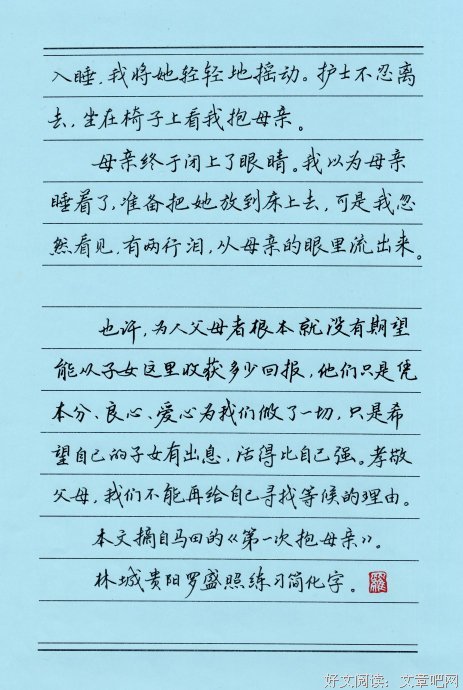 入睡，我将她轻轻地摇动。护士不忍离
去，坐在椅子上看我抱母亲。
母亲终于闭上了眼睛。我以为母亲
睡着了，准备把她放到床上去，可是我忽
然看见，有两行泪，从母亲的眼里流出来。
也许，为人父母者根本就没有期望
能从子女这里收获多少回报，他们只是凭
本分、良心、爱心为我们做了一切，只是希
望自己的子女有出息，活得比自己强。孝敬
父母，我们不能再给自己寻找等候的理由。
本文摘自马田的《第一次抱母亲》。
林城贵阳罗盛照练习简化字。
好文阅读：文章吧网